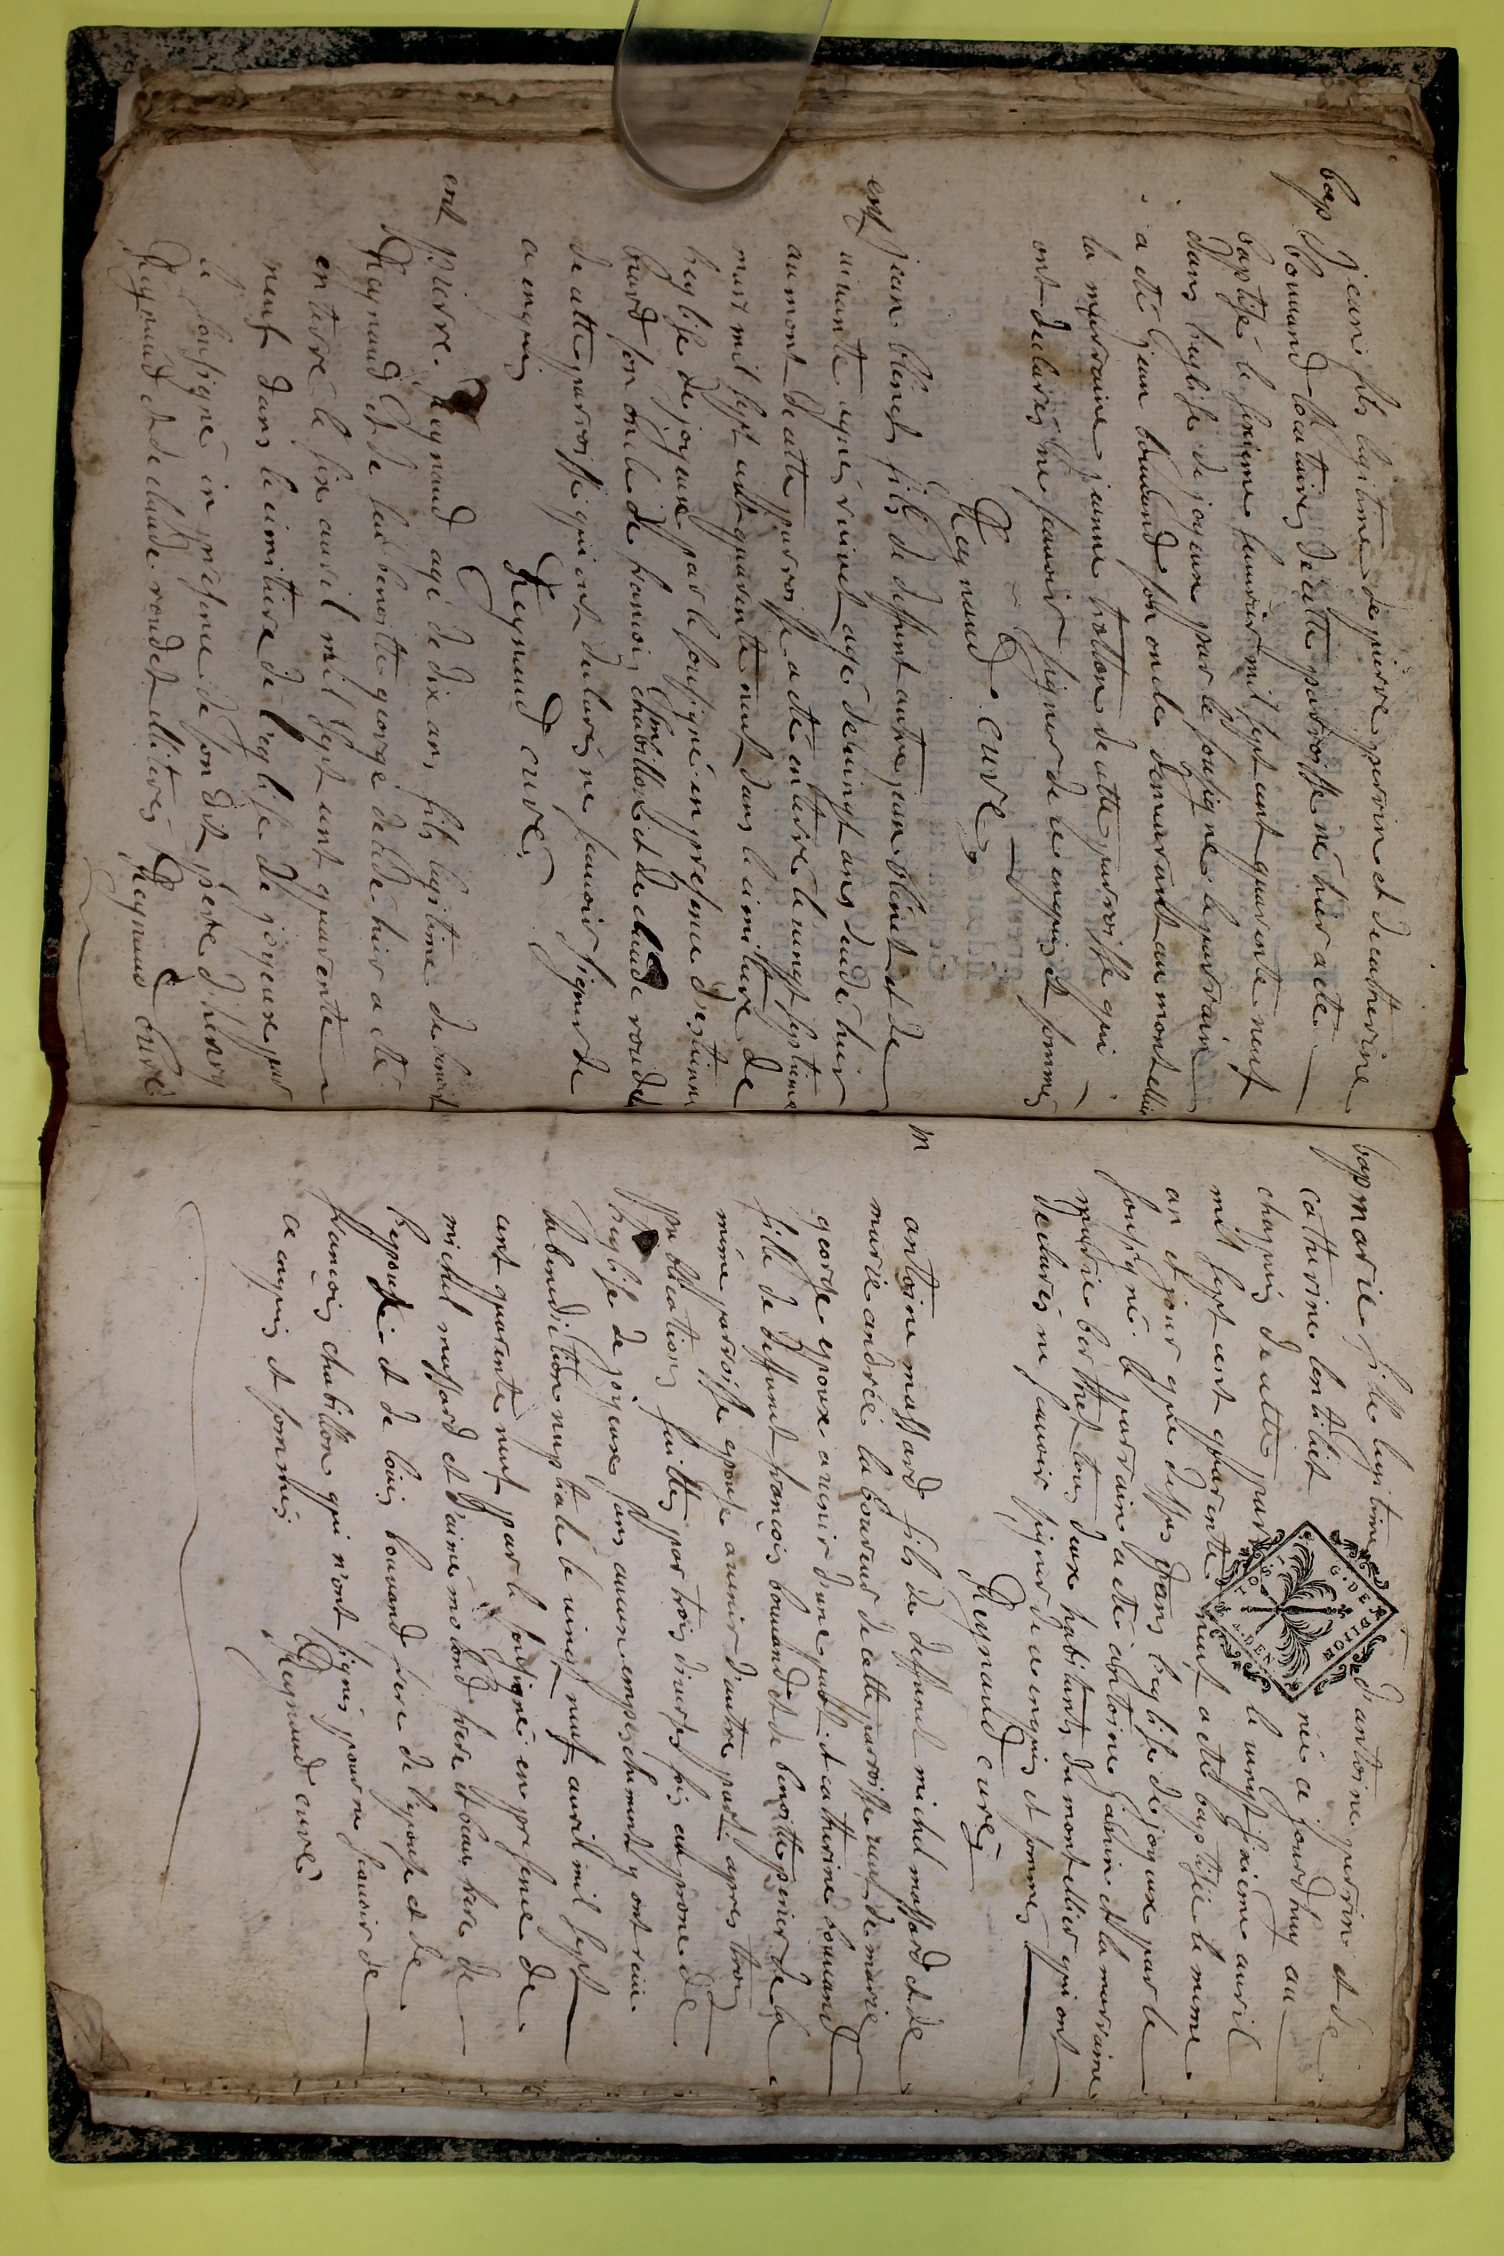 bap Jean fils legitime de pierre perrin et de catherine
bouuand locataires de cette parroisse né hier a eté
baptisé le sixieme feurier mil sept cent quarante neuf
dans l'eglise de joyeux par le sousigné le parrain
a eté jean bouuand son oncle demeurant au montellier
la marraine jeanne de cette parroisse qui
ont declarés ne scauoir signer de ce enquis et sommés
Reynaud curé
ent jean blénet fils de deffunt autre jean blénet et de
agé de vingt ans decedé hier
au mont de cette parroisse a eté enterré le vingt septieme
mars mil sept cent quarante neuf dans le cimitiere de
l'eglise de joyeux par le sousigné en presence d'estienne
son oncle de francois chabillon et de claude roudet
de cette parroisse qui ont declarés ne scauoir signer de
ce enquis Reynaud curé
ent pierre Reynaud agé de dix ans fils legitime de benoit
Reynaud et de benoitte george decedé hier a eté
enterré le six auril mil sept cent quarente
neuf dans le cimitiere de l'eglise de joyeux par
le sousigné en presence de son dit pere d'henry
Reynaud et de claude roudet illiterés Reynaud curé
bap marie fille legitime d'antoine perrin et de
catherine née ce jourd'huy au
chapuis de cette par le vingt sixieme auril
mil sept cent quarente neuf a eté baptisée le meme
an et jour que dessus dans l'eglise de joyeux par le
sousigné le parrain a eté antoine et la marraine
marie berthet tous deux habitants du montellier qui ont
declarés ne scauoir signer de ce enquis et sommés
Reynaud curé
G. DE DIJON
m antoine massard fils de deffunt michel massard et de
marie andrée laboureur de cette parroisse veuf de marie
george epoux auenir d'une part et catherine bouuand
fille de deffunt françois bouuand et de benoitte perier de la
même parroisse epouse auenir d'autre part apres trois
publications faittes par trois diuerses fois au prone de
l'eglise de joyeux sans aucun empeschement y ont reçu
la benediction nuptiale le vingt neuf auril mil sept
cent quarente neuf par le sousigné en presence de
michel massard et d'aimé frere et beau frere de
l'epoux et de louis bouuand frere de l'epouse et de
françois chabillon qui n'ont signés pour ne scauoir de
ce enquis et sommés Reynaud curé